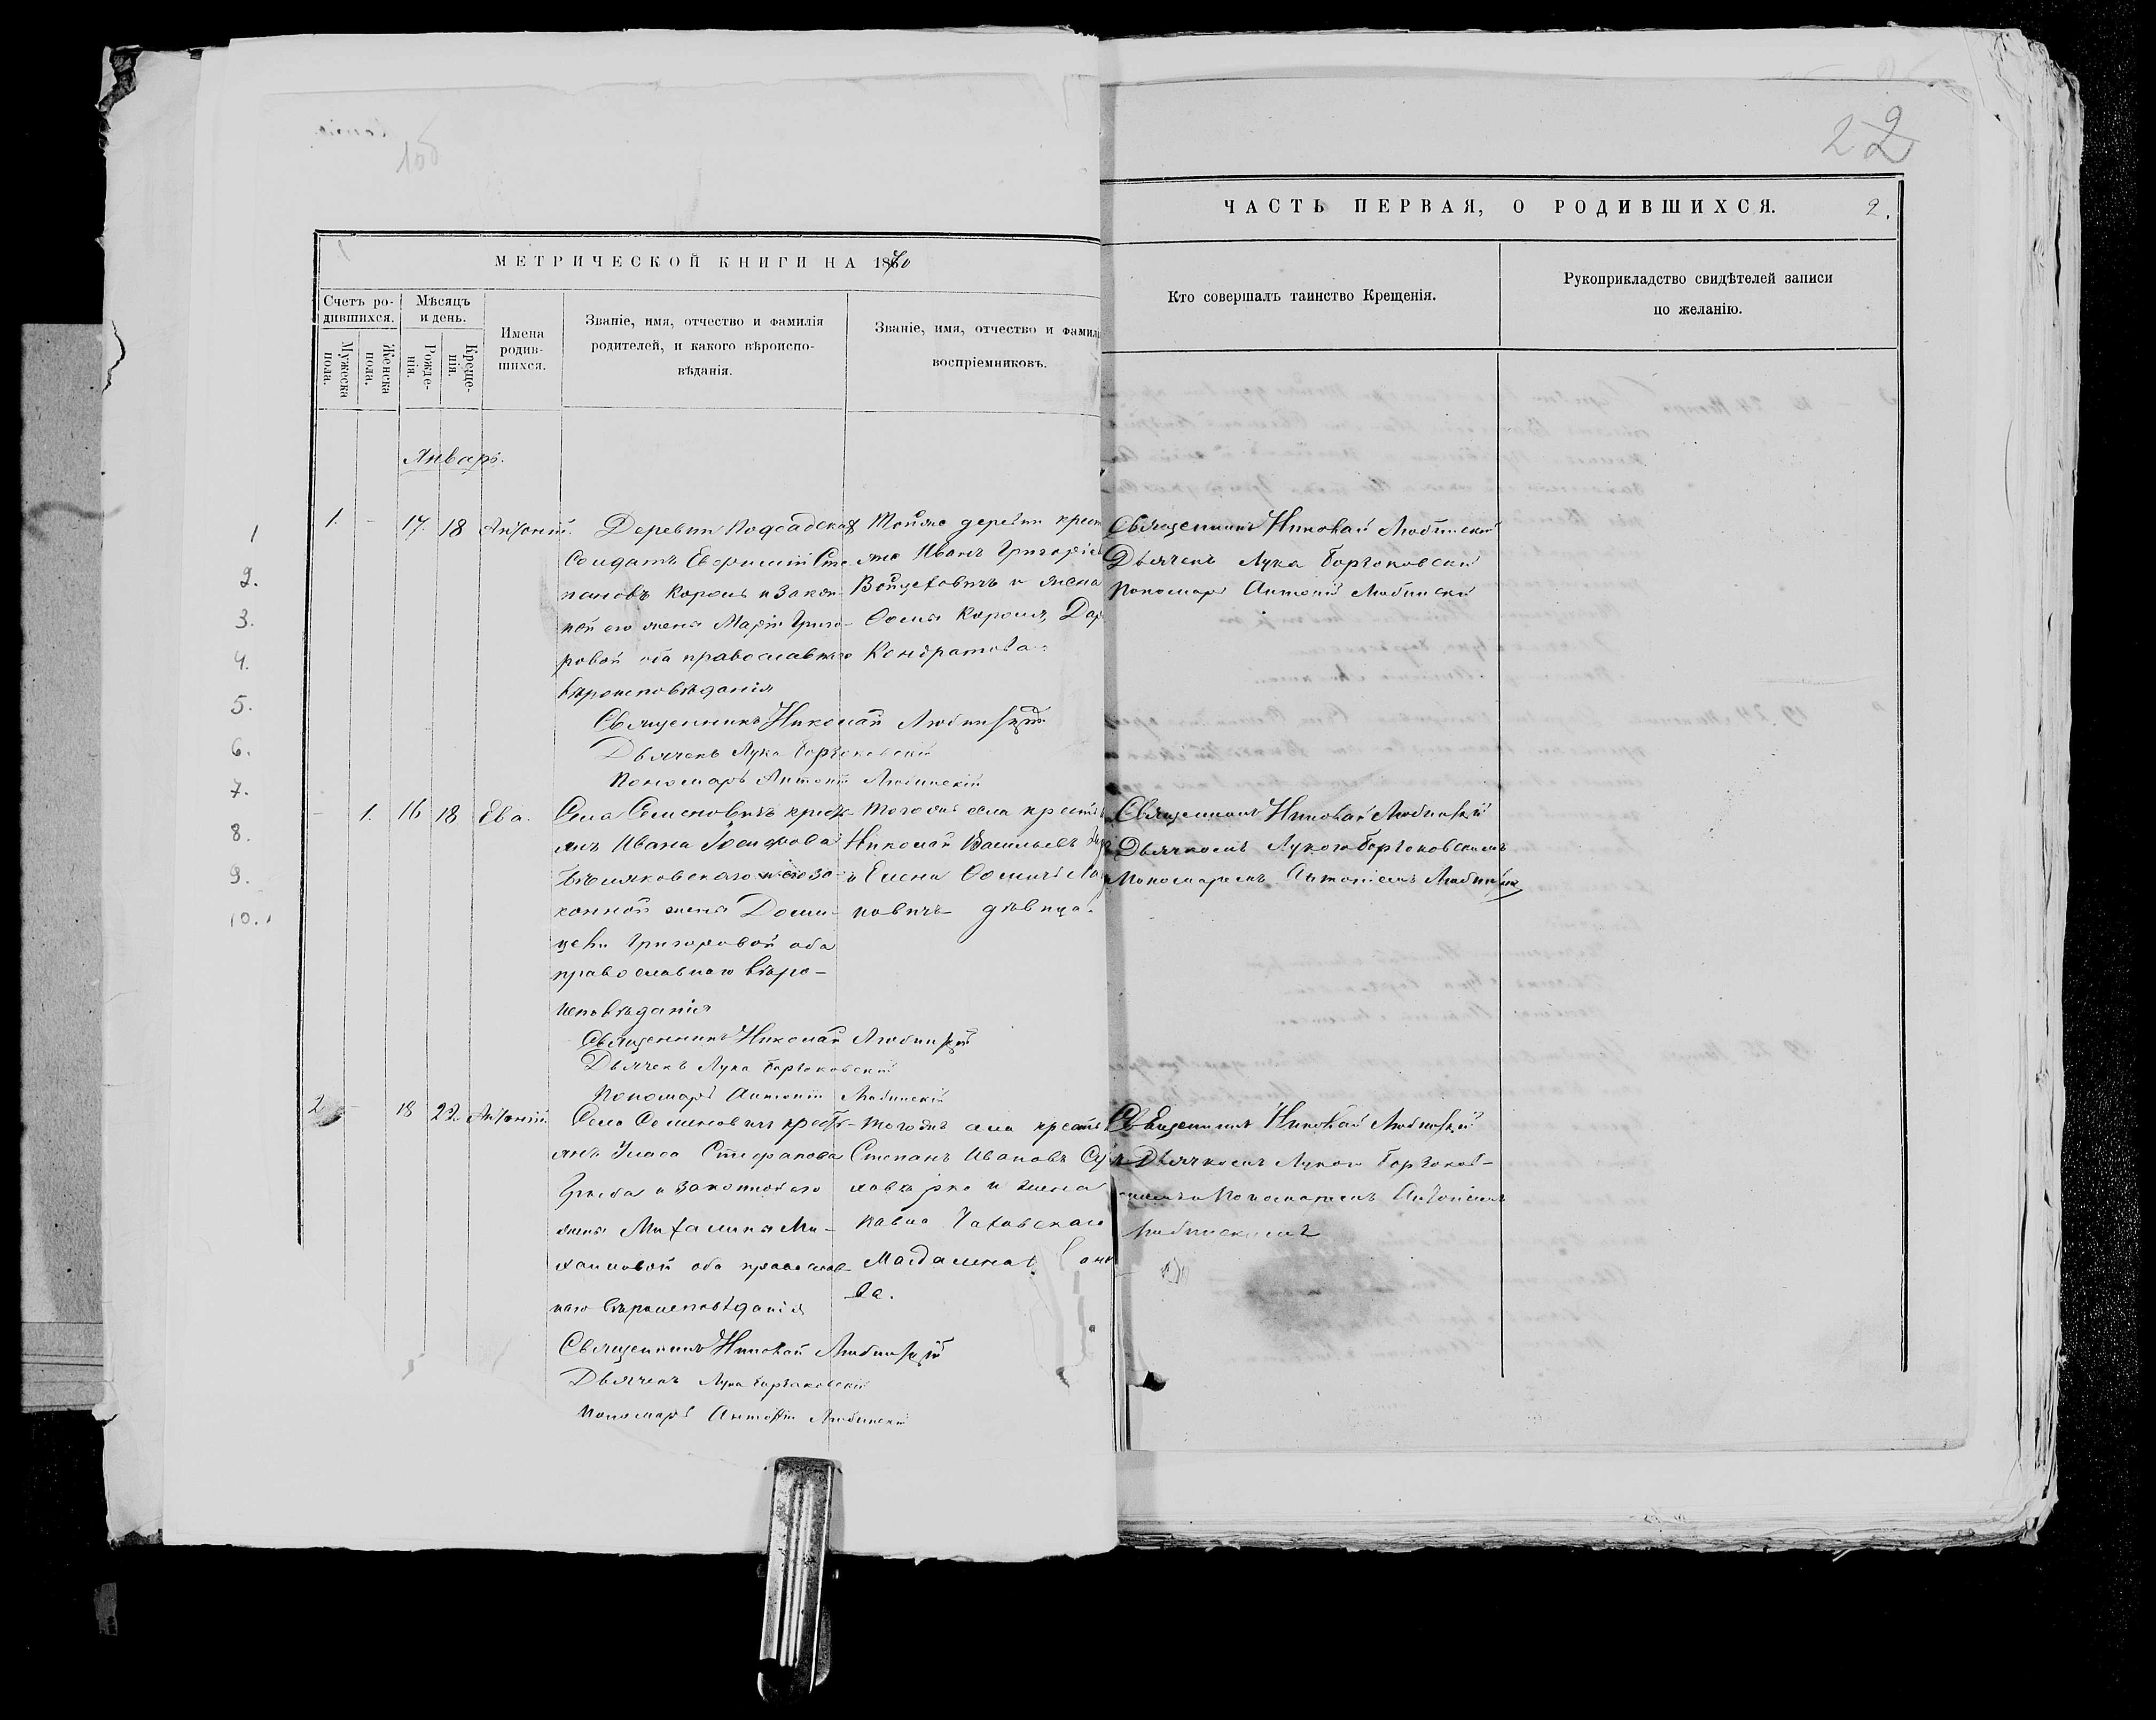 105
22
МЕТРИЧЕСКОЙ КНИГИ НА 1870
ЧАСТЬ ПЕРВАЯ, О РОДИВШИХСЯ.
2.
Счетъ ро-
дившихся.
Мужеска
пола.
Женска
пола.
Мѣсяцъ
и день.
Рожде-
нія.
Креще-
нія.
Имена
родив-
шихся.
Званіе, имя, отчество и фамилія
родителей, и какого вѣроиспо-
вѣданія.
Званіе, имя, отчество и фамил
воспріемниковъ.
Кто совершалъ таинство Крещенія.
Рукоприкладство свидѣтелей записи
по желанію.
1
2.
3.
4.
5.
6.
7.
8.
9.
10.
Январь.
1. - 17. 18 Антоній.
Деревни Подсадской
Солдатъ Евфимій Сте
пановъ Король и закон-
ной его жены Маріи Григо-
ровой оба православнаго
вѣроисповѣданія
Священникъ Николай Любинскій
Дьячекъ Лука Боржоковскій
Пономарь Антоній Любинскій
Тойже деревни крест
яно Иванъ Григоріев
Войцеховичъ и жена
Фомы Короля, Дар
Кондратова.
Священникъ Николай Любинскій
Дьячекъ Лука Боржоковскій
Пономарь Антоній Любинскій
- 1. 16 18 Ева.
Села Семеновичъ крест-
янъ Ивана Іосифова
и его за-
конной жены Доми-
цели Григоровой оба
православнаго вѣро-
исповѣданія
Священникъ Николай Любинскій
Дьячекъ Лука Боржоковскій
Пономарь Антоній Любинскій
Тогожъ села крестья
Николай Васильевъ
и Елена Фомичъ
новичъ дѣвица.
Священникъ Николай Любинскій
Дьячкомъ Лукою Боржоковскимъ
Пономаремъ Антоніемъ Любинским
2 - 18 22. Антоній.
Села Семеновичъ крест-
янъ Уласа Стефанова
Грыба и законной его
жены Михалины Ми-
хайловой оба православ-
наго вѣроисповѣданія
Священникъ Николай Любинскій
Дьячекъ Лука Боржоковскій
Пономарь Антоній Любинскій
Тогожъ села крестья
Степанъ Ивановъ
и жена
Павла Чаховскаго
Магдалена
ва.
Священникъ Николай Любинскій
Дьячкомъ Лукою Боржоков-
скимъ и Пономаремъ Антоніемъ
Любинскимъ